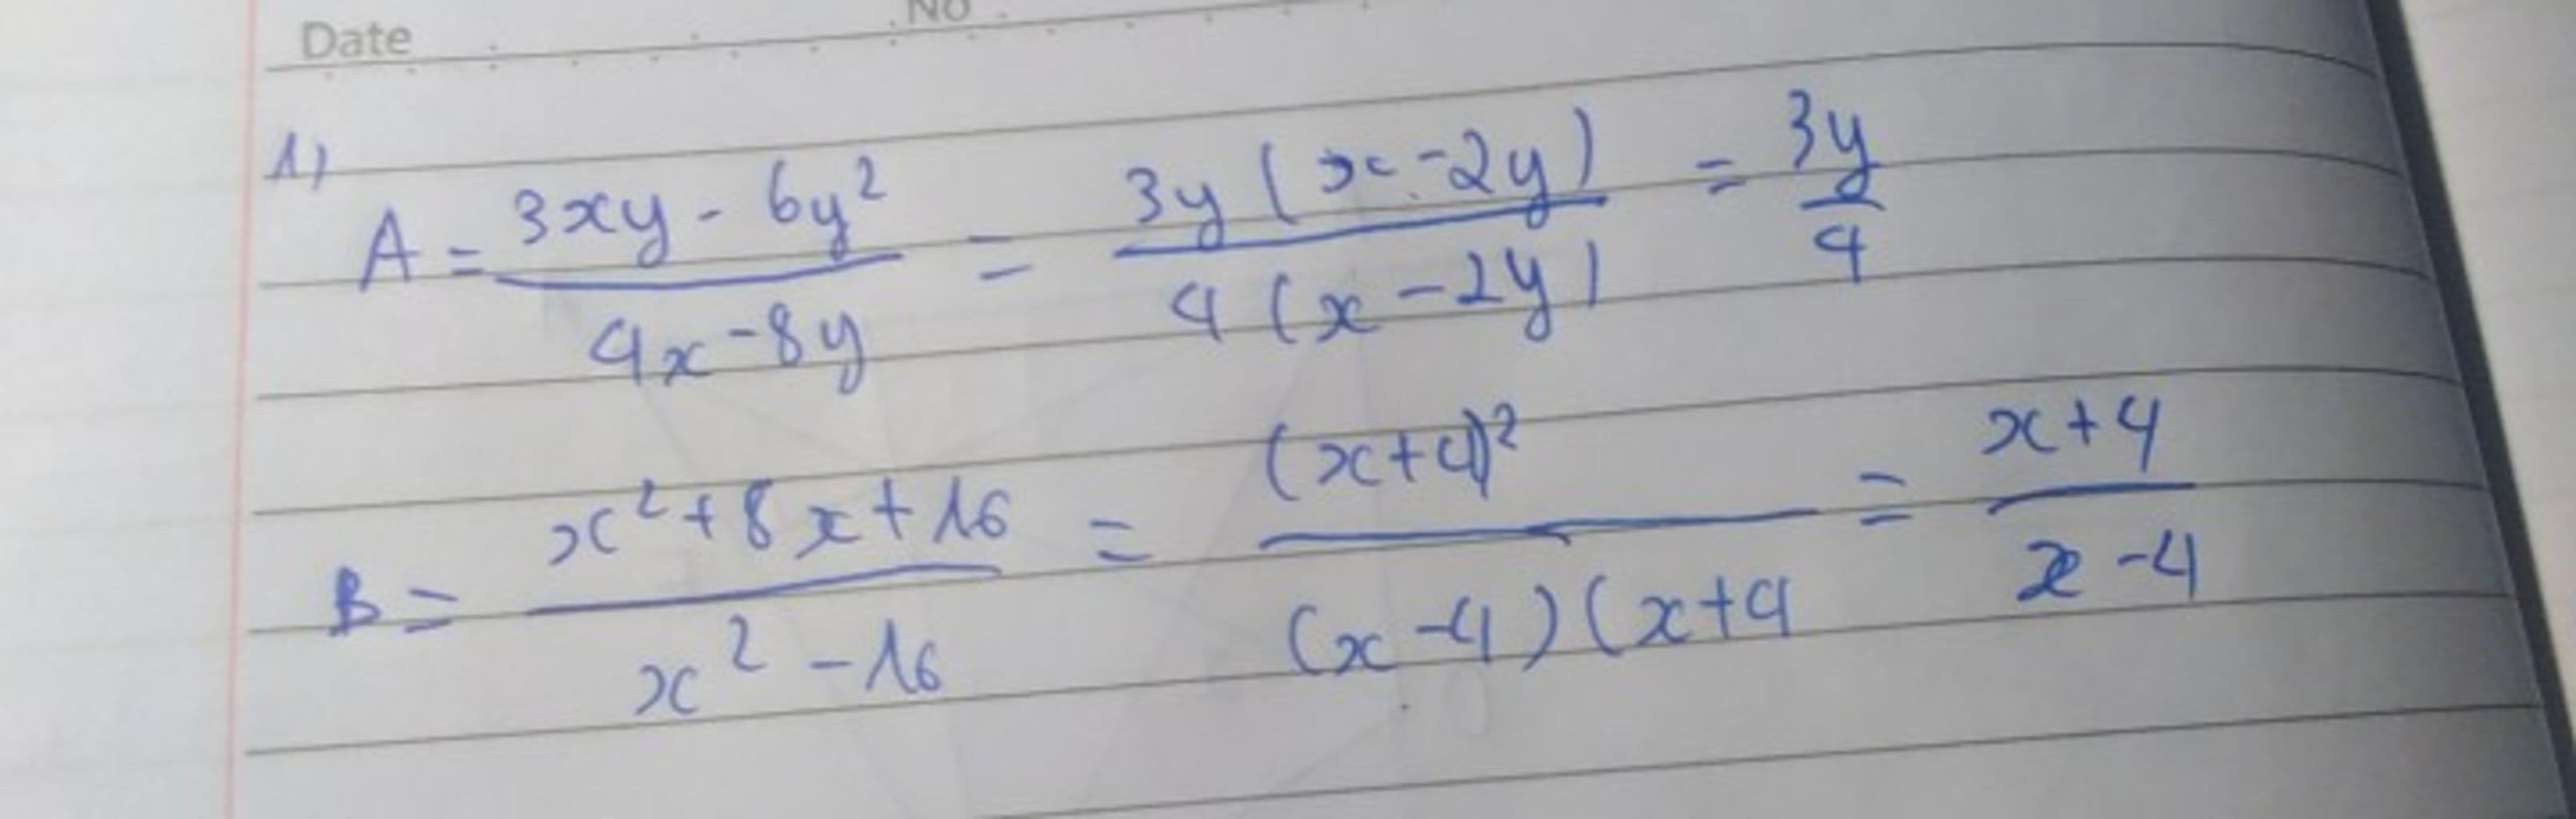 Date No
1)
A = \frac{3xy - 6y^2}{4x - 8y} = \frac{3y(x - 2y)}{4(x - 2y)} = \frac{3y}{4}
B = \frac{x^2 + 8x + 16}{x^2 - 16} = \frac{(x+4)^2}{(x-4)(x+4} = \frac{x+4}{x-4}